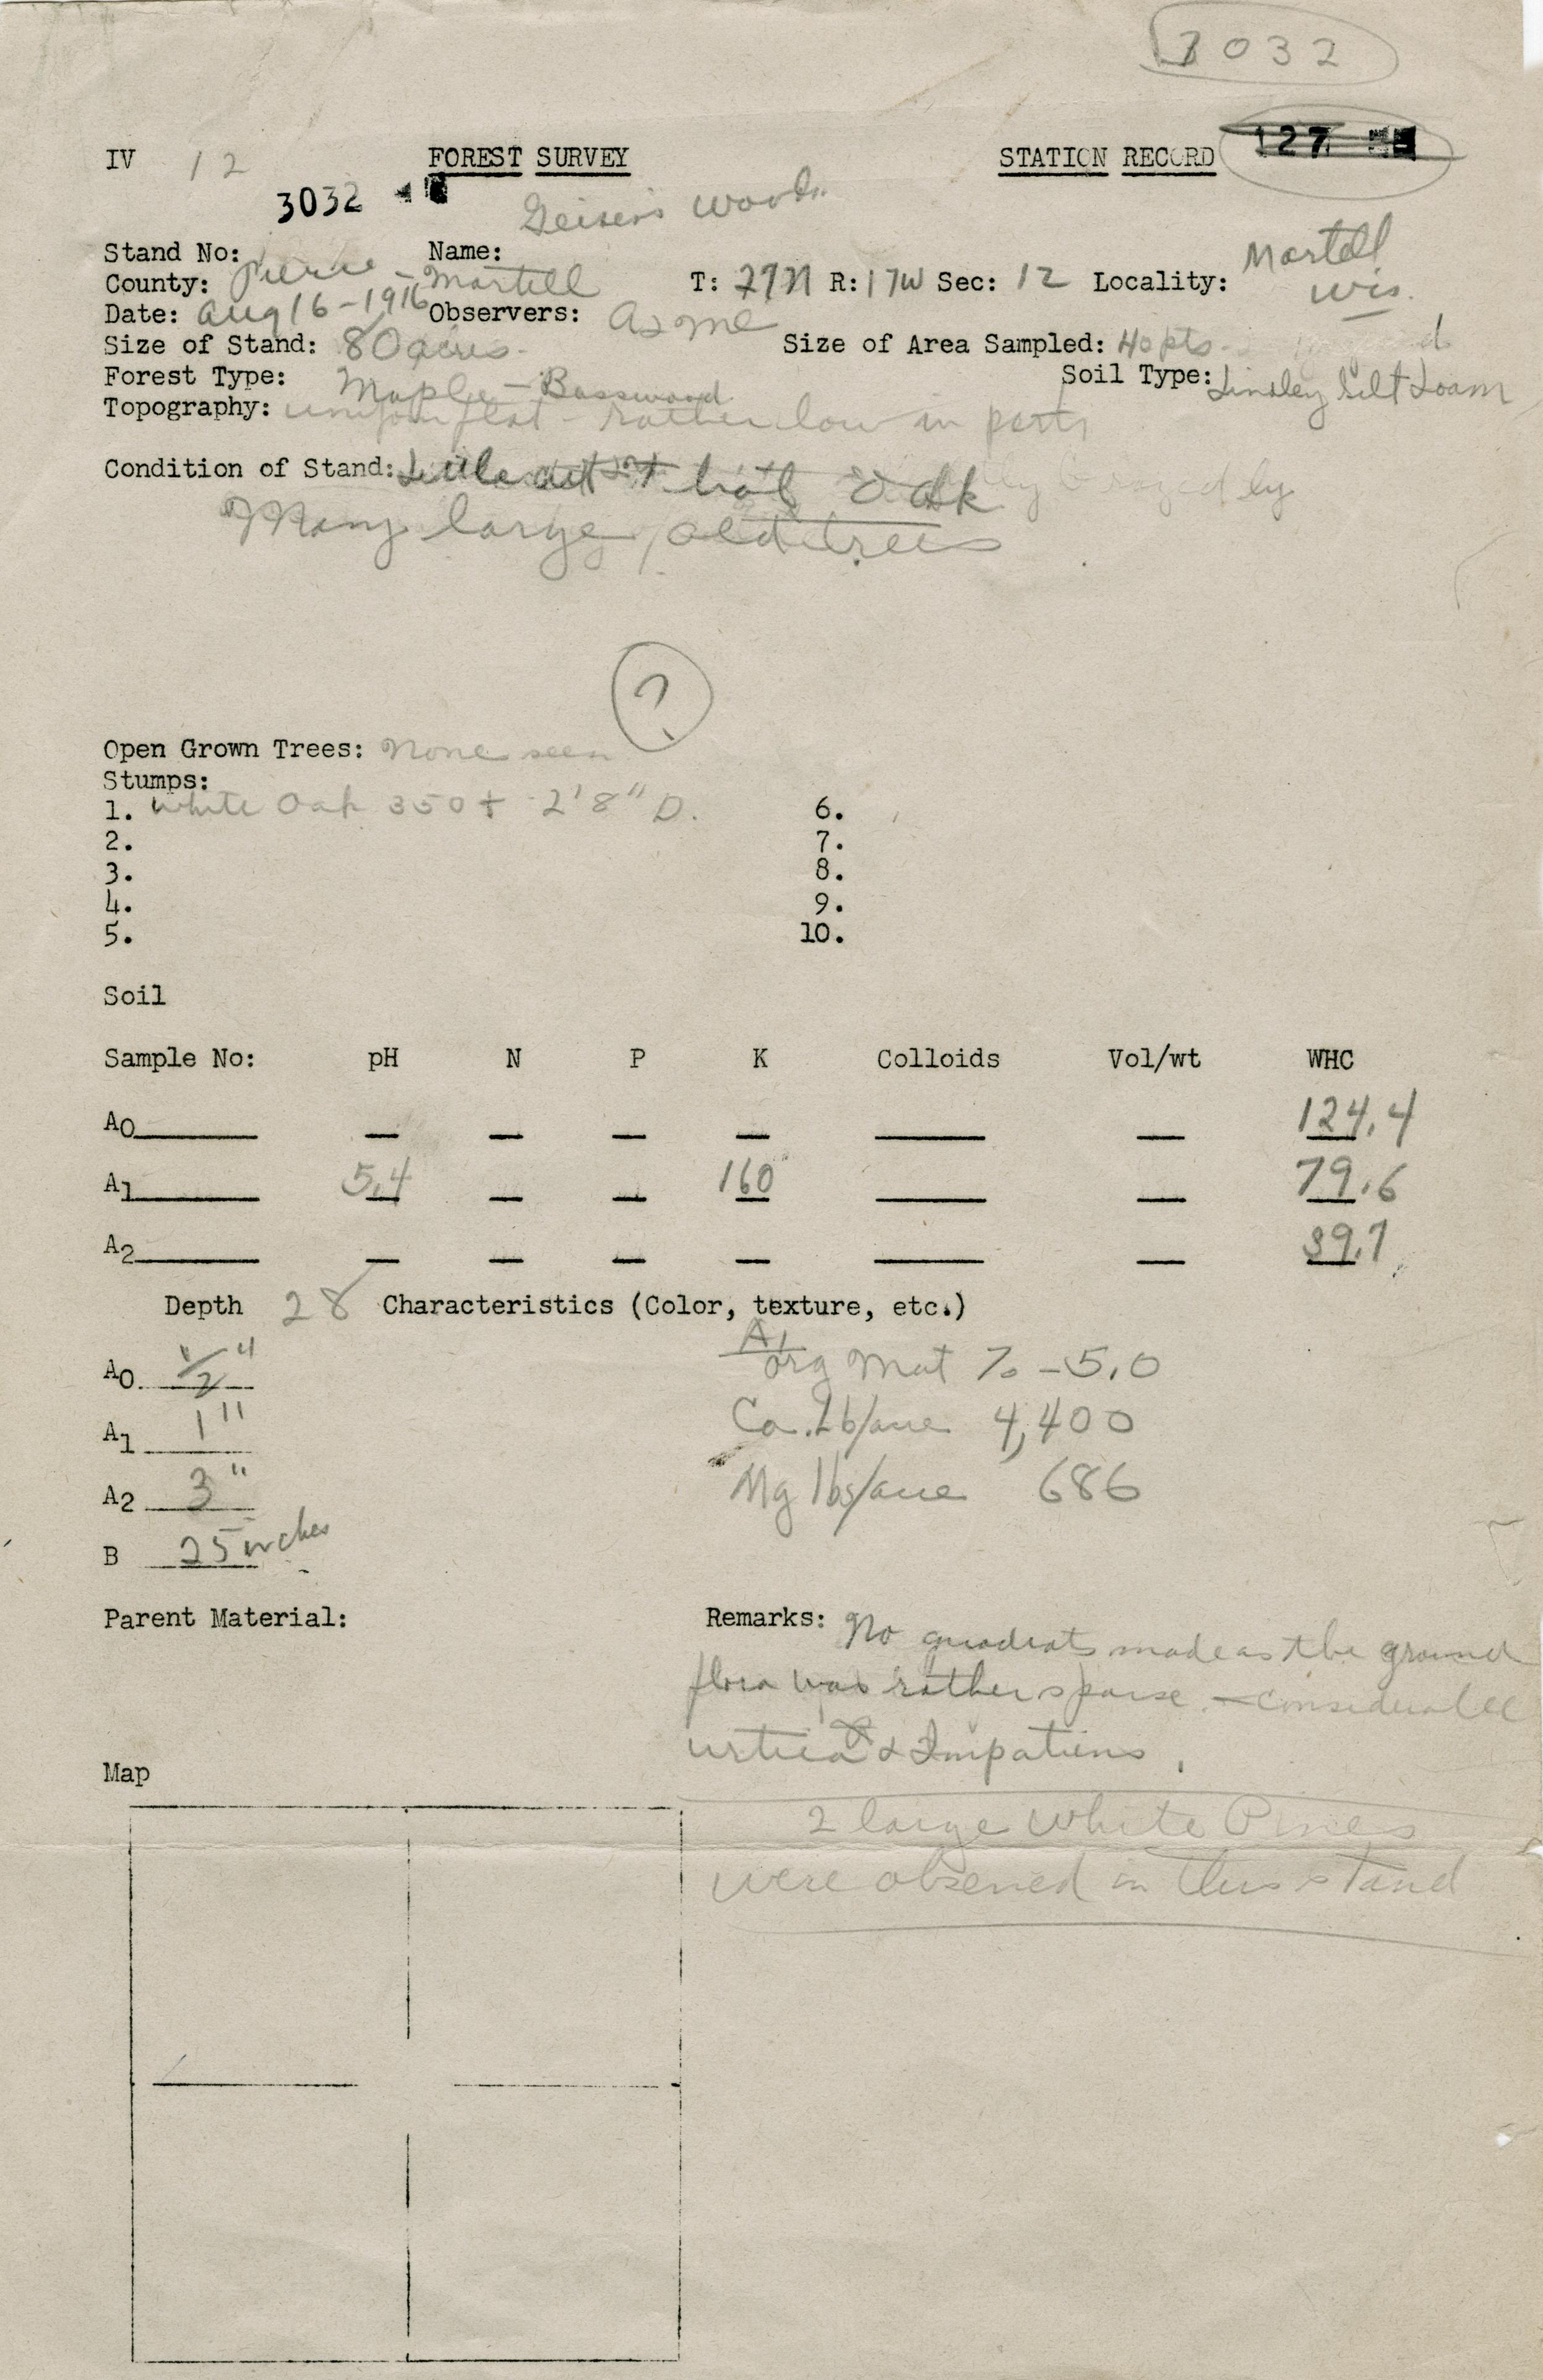 3032
IV 12 FOREST SURVEY STATION RECORD 127
3032
Geiser's Woods
Stand No: Name:
County: Pierce - Martell T: 27N R: 17W Sec: 12 Locality: Martell Wis.
Date: Aug 16 - 1916 Observers:
Size of Stand: 80 acres Size of Area Sampled: 40 pts
Forest Type: Maple - Basswood Soil Type: Lindley Silt Loam
Topography: uniform flat - rather low in parts
Condition of Stand: Little cut oak
Many large, old trees
?
Open Grown Trees: None seen
Stumps:
1. White Oak 350± 2'8" D. 6.
2. 7.
3. 8.
4. 9.
5. 10.
Soil
Sample No: pH N P K Colloids Vol/wt WHC
A0 124.4
A1 5.4 160 79.6
A2 39.7
Depth 28 Characteristics (Color, texture, etc.)
A1
A0 1/2" Org Mat % - 5.0
A1 1" Ca. Lb/acre 4,400
A2 3" Mg lbs/acre 686
B 25 inches
Parent Material: Remarks: No quadrats made as the ground
flora was rather sparse - considerable
urtica & Impatiens.
Map
2 large White Pines
were observed in this stand